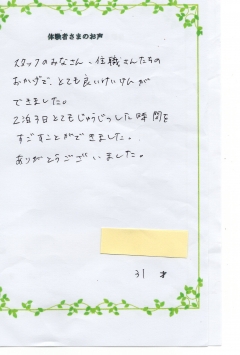 体験者さまのお声
スタッフのみなさん、住職さんたちの
おかげで、とても良いけいけんが
できました。
2泊3日とてもじゅうじつした時間を
すごすことができました。
ありがとうございました。
31才